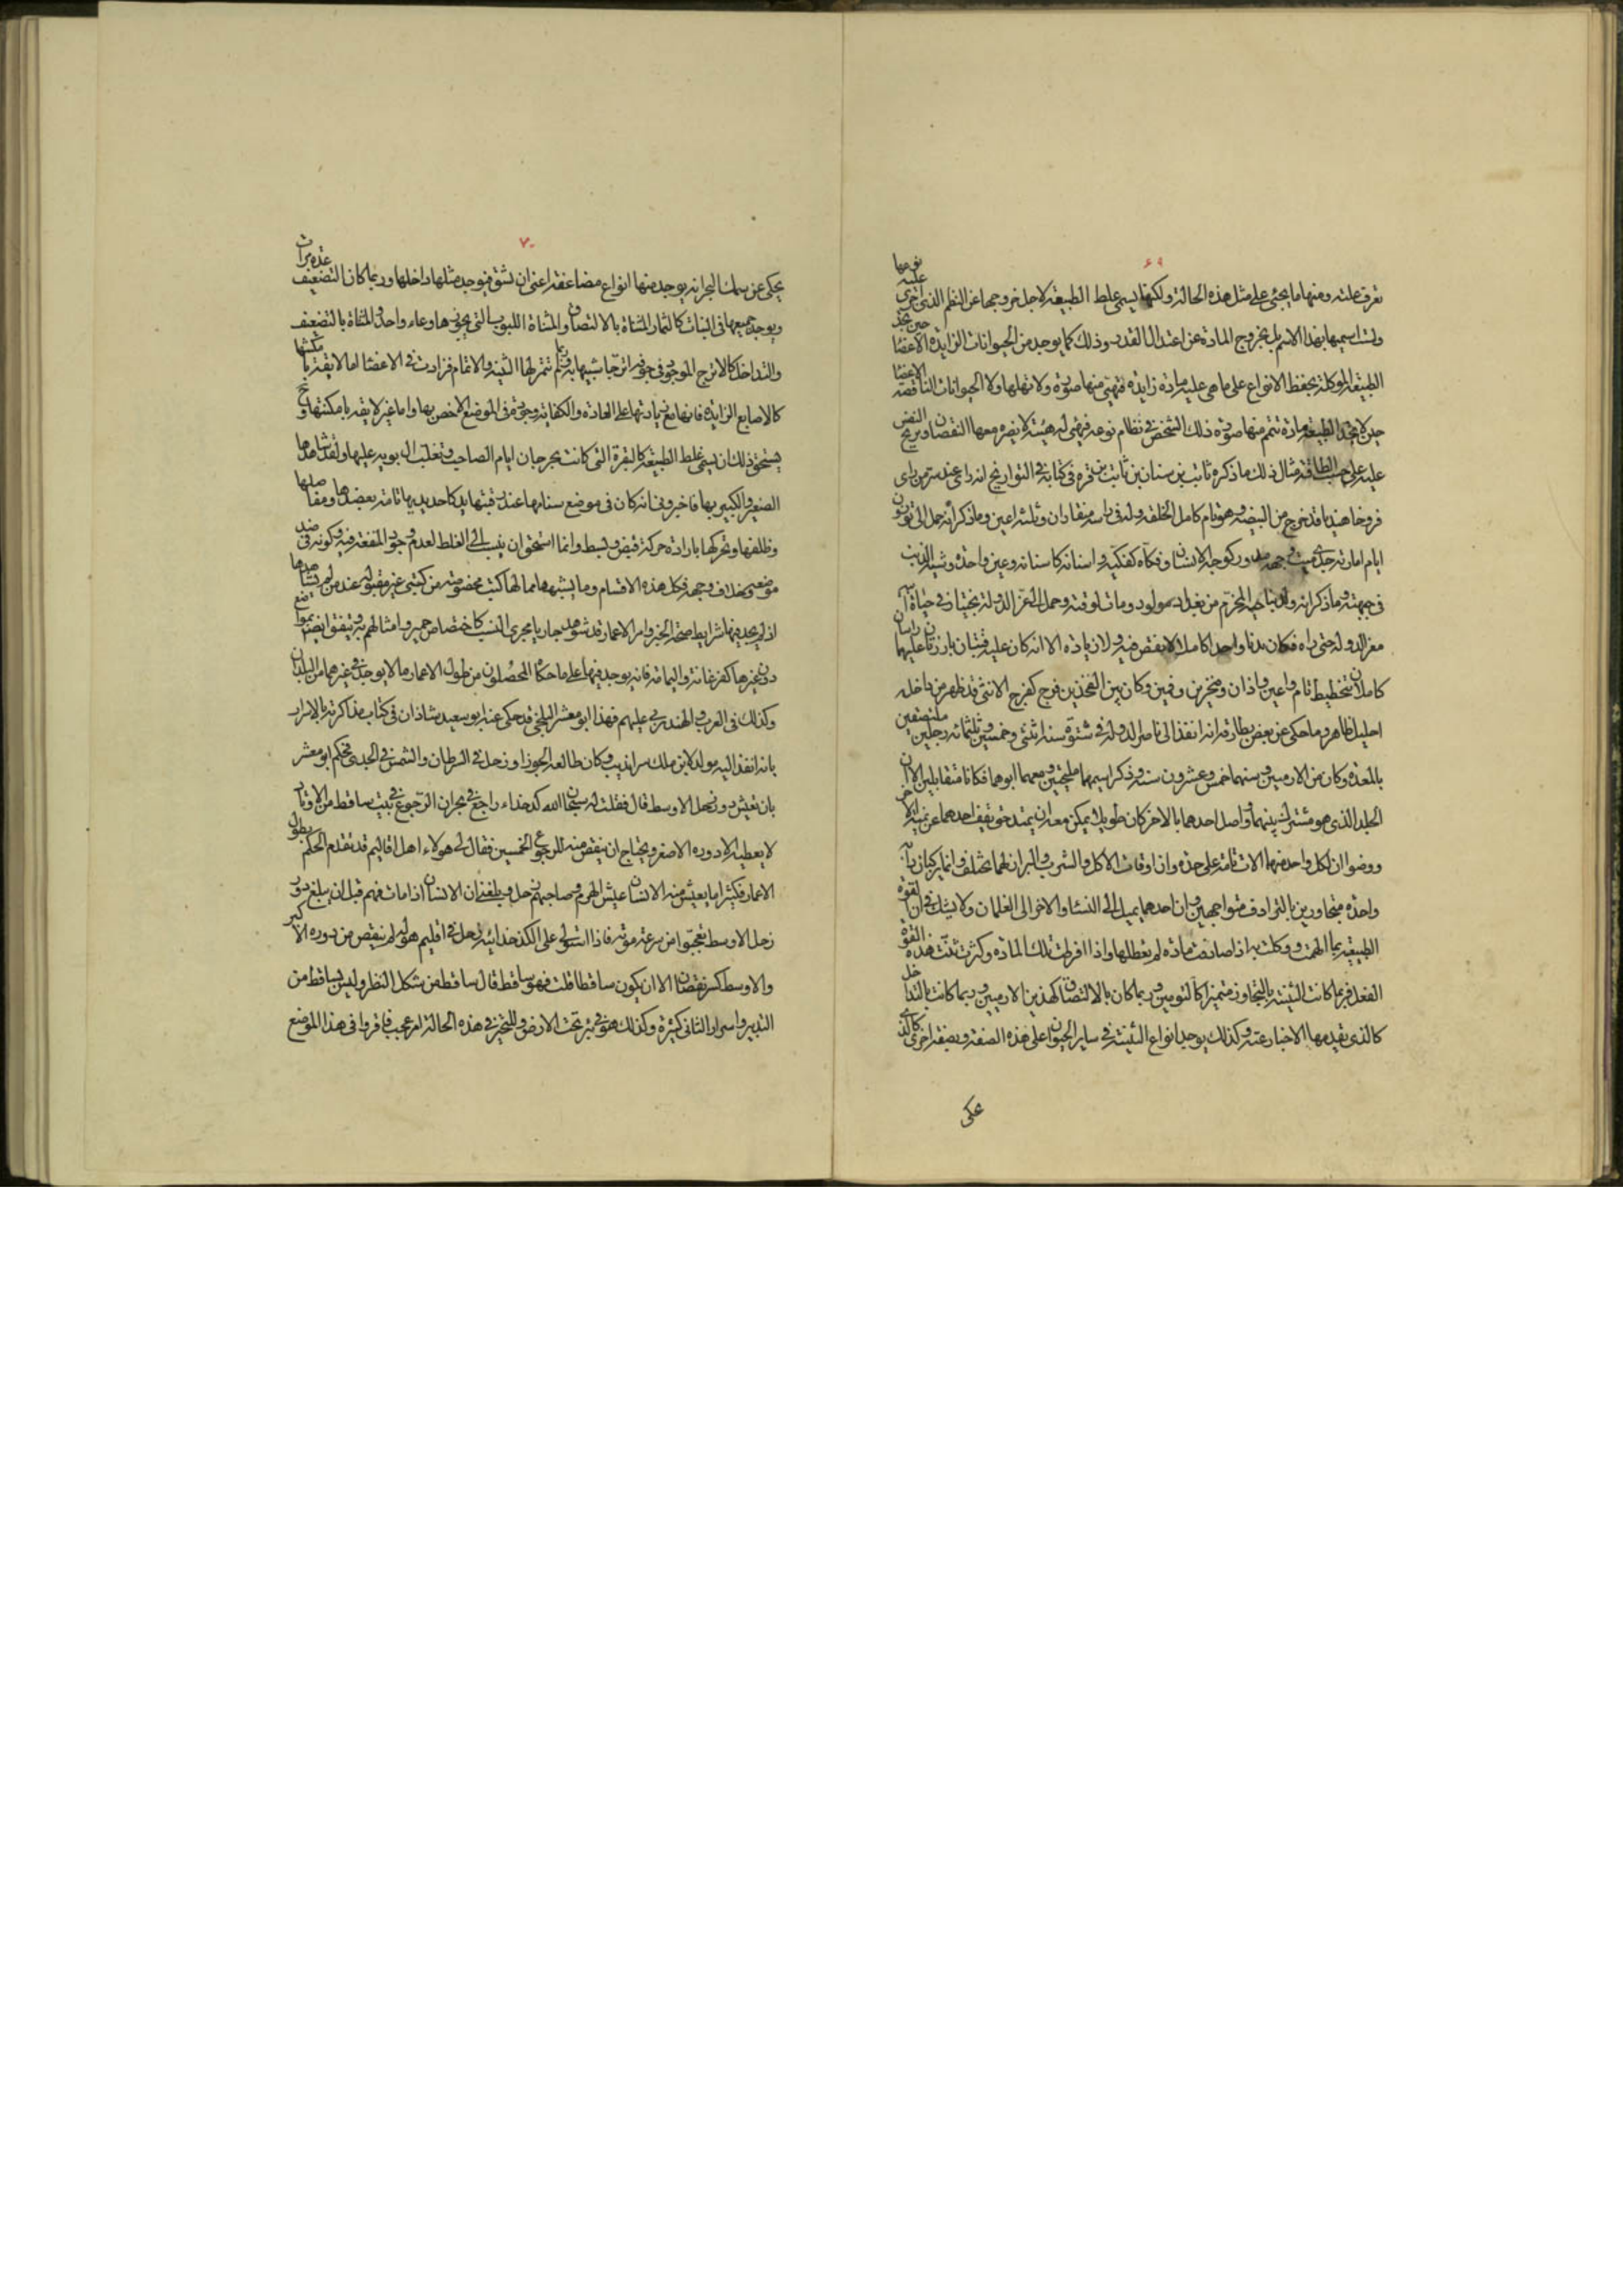 ٦٩
تعرف علته ومنها ما يجئ على مثل هذه الحالة ولكنها يسمى غلط الطبيعة لاجل خروجها عن النظم الذى اجرى عليه نوعها
ولست اسميها بهذا الاسم بل بخروج المادة عن اعتدال القدر وذلك كما يوجد من الحيوانات الزايدة الاعضا حين تجد
الطبيعة الموكلة بحفظ الانواع على ما هى عليه مادة زايدة فتهيئ منها صورة ولا تهملها ولا الحيوانات الناقصه الاعضا
حين لا تجد الطبيعة مادة تتمم منها صورة ذلك الشخص فى نظام نوعه فتهيئ له هيئة لا يضره معها النقصان وتزيح النفس
عليه على حسب الطاقة مثال ذلك ما ذكره ثابت بن سنان بن ثابت بن قره فى كتابه فى التواريخ انه راى عند سرمن راى
فروخا هنديا قد خرج من البيضه وهو تام كامل الخلقه وله فى راسه منقاران وثلثة اعين وما ذكر انه حمل الى توزون
ايام امارته جدى ميت وجهه مدور كوجه الانسان وفكاه كفكيه واسنانه كاسنانه وعين واحدة وشبه الذنب
فى جبهته وما ذكر انه ولد بناحية المخرم من بغداد مولود ومات لوقته وحمل الى عز الدولة بختيار فى حياة
معز الدوله حتى راه فكان بدنا واحدا كاملا لا ينقص فيه ولا زيادة الا انه كان عليه رقبتان بارزتان عليهما راسان
كاملان بتخطيط تام واعين واذان ومنخرين وفمين وكان بين الفخذين فرج كفرج الانثى قد ظهر من داخله
احليل ظاهر وما حكى عن بعض بطارقة انه انفذ الى ناصر الدوله فى شتوة سنة اثنتى وخمسين وثلثمائه رجلين ملتصقين
بالمعدة وكان من الارمبين وسنهما خمس وعشرون سنه وذكر انهما ملتحيين ومعهما ابوهما فكانا متقابلين الا ان
الجلد الذى هو مشترك بينهما واصل احدهما بالاخر كان طويلا يمكن معه ان يمتد حتى يقف احدهما عن يمنة الاخر
ووصفوا ان لكل واحد منهما الات تامة على حده وان اوقات الاكل والشرب والبراز لهما تختلف وانما يركبان
واحدة متجاورين بالترادف متواجهين وان احدهما يميل الى النسا والاخر الى الغلمان ولا يشك فى ان القوة
الطبيعية بما الهمت ووكلت به اذا صادفت مادة لم تعطلها واذا افرطت تلك المادة وكثرت ثنت هذه القوة
الفعل فربما كانت التثنية بالتجاوز متميزا كالتوميين وربما كان بالالتصاق كهذين الارمبيين وربما كانت بالتداخل
كالذى تقدمها الاخبار عنه وكذلك يوجد انواع التثنية فى ساير الحيوان على هذه الصفه وبصفة اخرى كالذى
يحكى
٧٠
يحكى عن سمك البحر انه يوجد منها انواع مضاعفة اعنى ان تشق فيوجد مثلها داخلها وربما كان التضعيف عدة مرات
ويوجد جميعها فى النبات كالثمار المثناة بالالتصاق والمثناة اللبوب التى يحويها وعاء واحد والمثناة بالتضعيف
والتداخل كالاترج الموجود فى جوف اترجا شبيها به وربما لم تتم لها التثنية والاتمام فزادت فى الاعضا اما لا يقدر بامكنتها
كالاصابع الزايدة فانها مع زيادتها على العادة والكفاية وجدت فى الموضع الاخص بها واما غير لا يقدر بامكنتها
يستحق ذلك ان يسمى غلط الطبيعة كالبقرة التى كانت بجرجان ايام الصاحب وتغلب ال بويه عليها ولقد شاهدها
الصغير والكبير بها فاخبرونى انه كان فى موضع سنامها عند رقبتها يد كاحد يديها تامة بعضدها ومفاصلها
وظلفها وتحركها بارادة حركة قبض وبسط وانما استحق ان ينسب الى الغلط لعدم وجود المنفعة فيه وكونه فى ضد
موضعه وبخلاف وجهه فكل هذه الاقسام وما يشبهها مما لها كتب مخصوصة من كتبى غير مقبوله عند من لم يشاهدها
اذا لم يجد فيها شرايط صحة الخبر وامر الاعمار قد شوهد جاريا مجرى النسب كاختصاص حمير وامثالهم به ويتفق ايضا بمواضع
دون غيرها كفرغانة واليمامة فانه يوجد فيها على ما حكاه المحصلون من طول الاعمار ما لا يوجد فى غيرهما من البلدان
وكذلك فى العرب والهند يربى عليهم فهذا ابو معشر البلخى قد حكى عنه ابو سعيد شاذان فى كتاب مذاكراته بالاسرار
بانه انفذ اليه مولد لابن ملك سرانديب وكان طالعه الجوزا وزحل فى السرطان والشمس فى الجدى فحكم ابو معشر
بان تعيش دور زحل الاوسط قال فقلت له سبحان الله كدخداه راجع فى بحران الرجوع فى بيت ساقط من الاوتاد
لا يعطيه الا دوره الاصغر ويحتاج ان ينقص منه للرجوع الخمسين فقال لى هولاء اهل اقاليم قد تقدم الحكم بطول
الاعمار فكثيرا ما يعيش منه الانسان عيش الهرم وصاحبهم زحل وبلغنى ان الانسان اذا مات فهم قبل ان يبلغ دور
زحل الاوسط تعجبوا من سرعة موته فاذا استولى على الكدخدائية زحل فى اقليم هو له لم ينقص من دوره الاكبر
والاوسط كثير نقصان الا ان يكون ساقطا قلت فهو ساقط قال ساقط من شكل النظر وليس بساقط من
التدبير واسرار الثانى كثيرة وكذلك هو فى بئر تحت الارض وللمتحيز فى هذه الحالة امر عجيب فاقروا فى هذا الموضع